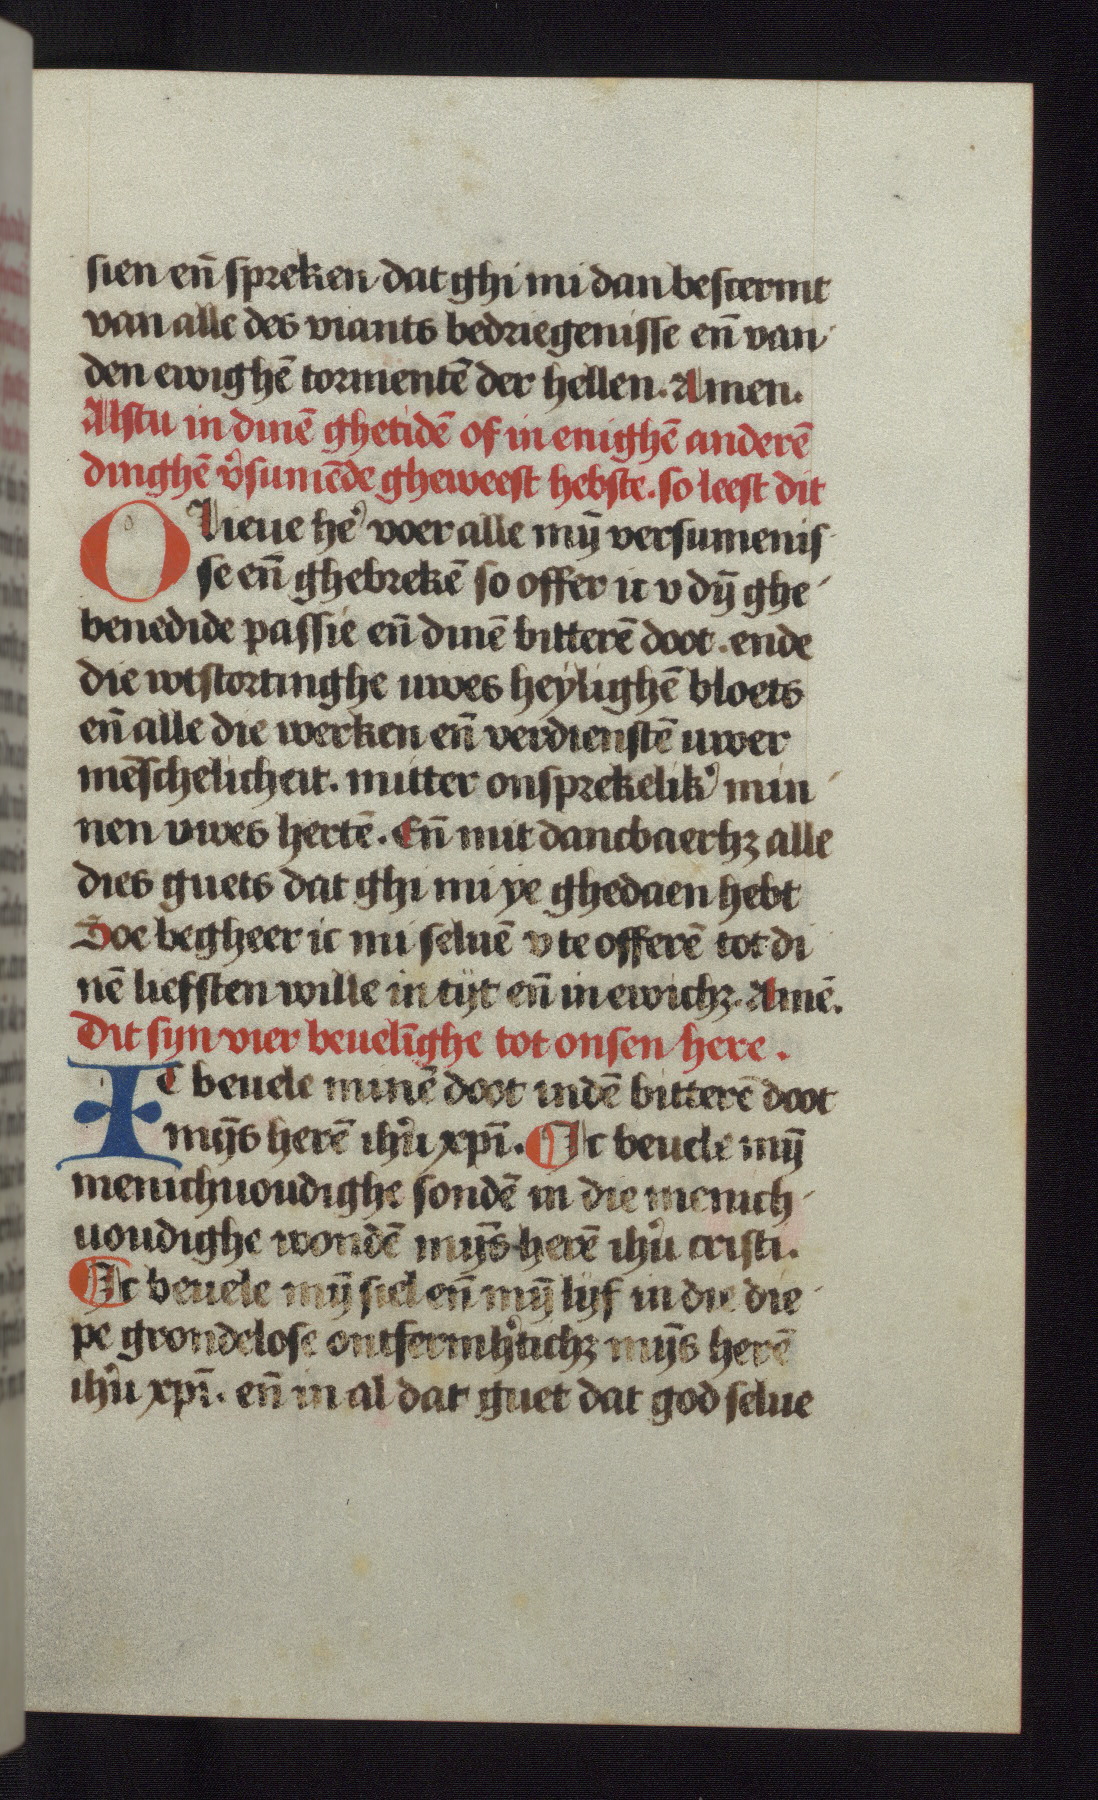 sien en̄ spreken dat ghi mi dan bescermt
van alle des viants bedriegenisse en̄ van
den ewighē tormentē der hellen. Amen.
Alstu in dinē ghetidē of in enighē anderē
dinghē v̉sumēde gheweest hebste. so leest dit
O lieue he᷒ voer alle mȳ versumenis
se en̄ ghebrekē so offer ic v dȳ ghe
benedide passie en̄ dinē bitterē doot. ende
die wtstortinghe uwes heylighē bloets
en̄ alle die werken en̄ verdienstē uwer
mēschelicheit. mitter onsprekelik᷒ min
nen uwes hertē. En̄ mit dancbaerhꝫ alle
dies guets dat ghi mi ye ghedaen hebt
Soe begheer ic mi seluē v te offerē tot di
nē liefsten wille in tijt en̄ in ewichꝫ. Amē.
Dit syn vier beuelīghe tot onsen here.
Ic beuele minē doot indē bitterē doot
mȳs herē ihū xpī. Ic beuele mȳ
menichuoudighe sondē in die menich
uoudighe wondē mȳs herē ihū cristi.
Ic beuele mȳ siel en̄ mȳ lijf in die die
pe grondelose ontfermh᷒tichꝫ mȳs herē
ihū xpī. en̄ in al dat guet dat god selue